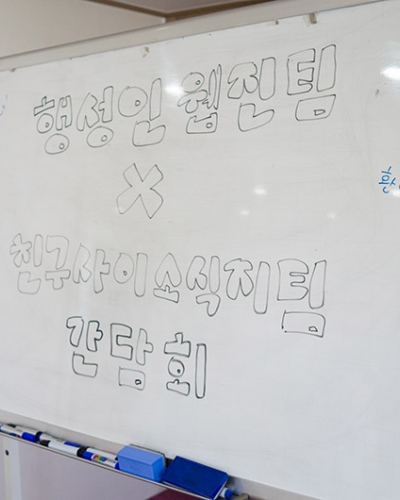 행성인 웹진팀
X
친구사이 소식지팀
간담회